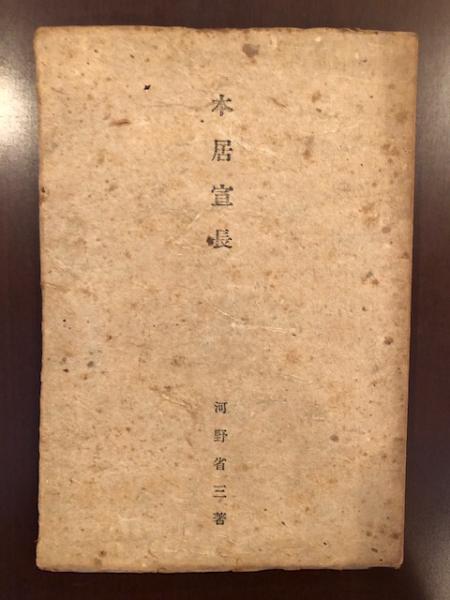 本居宣長
河野省三著